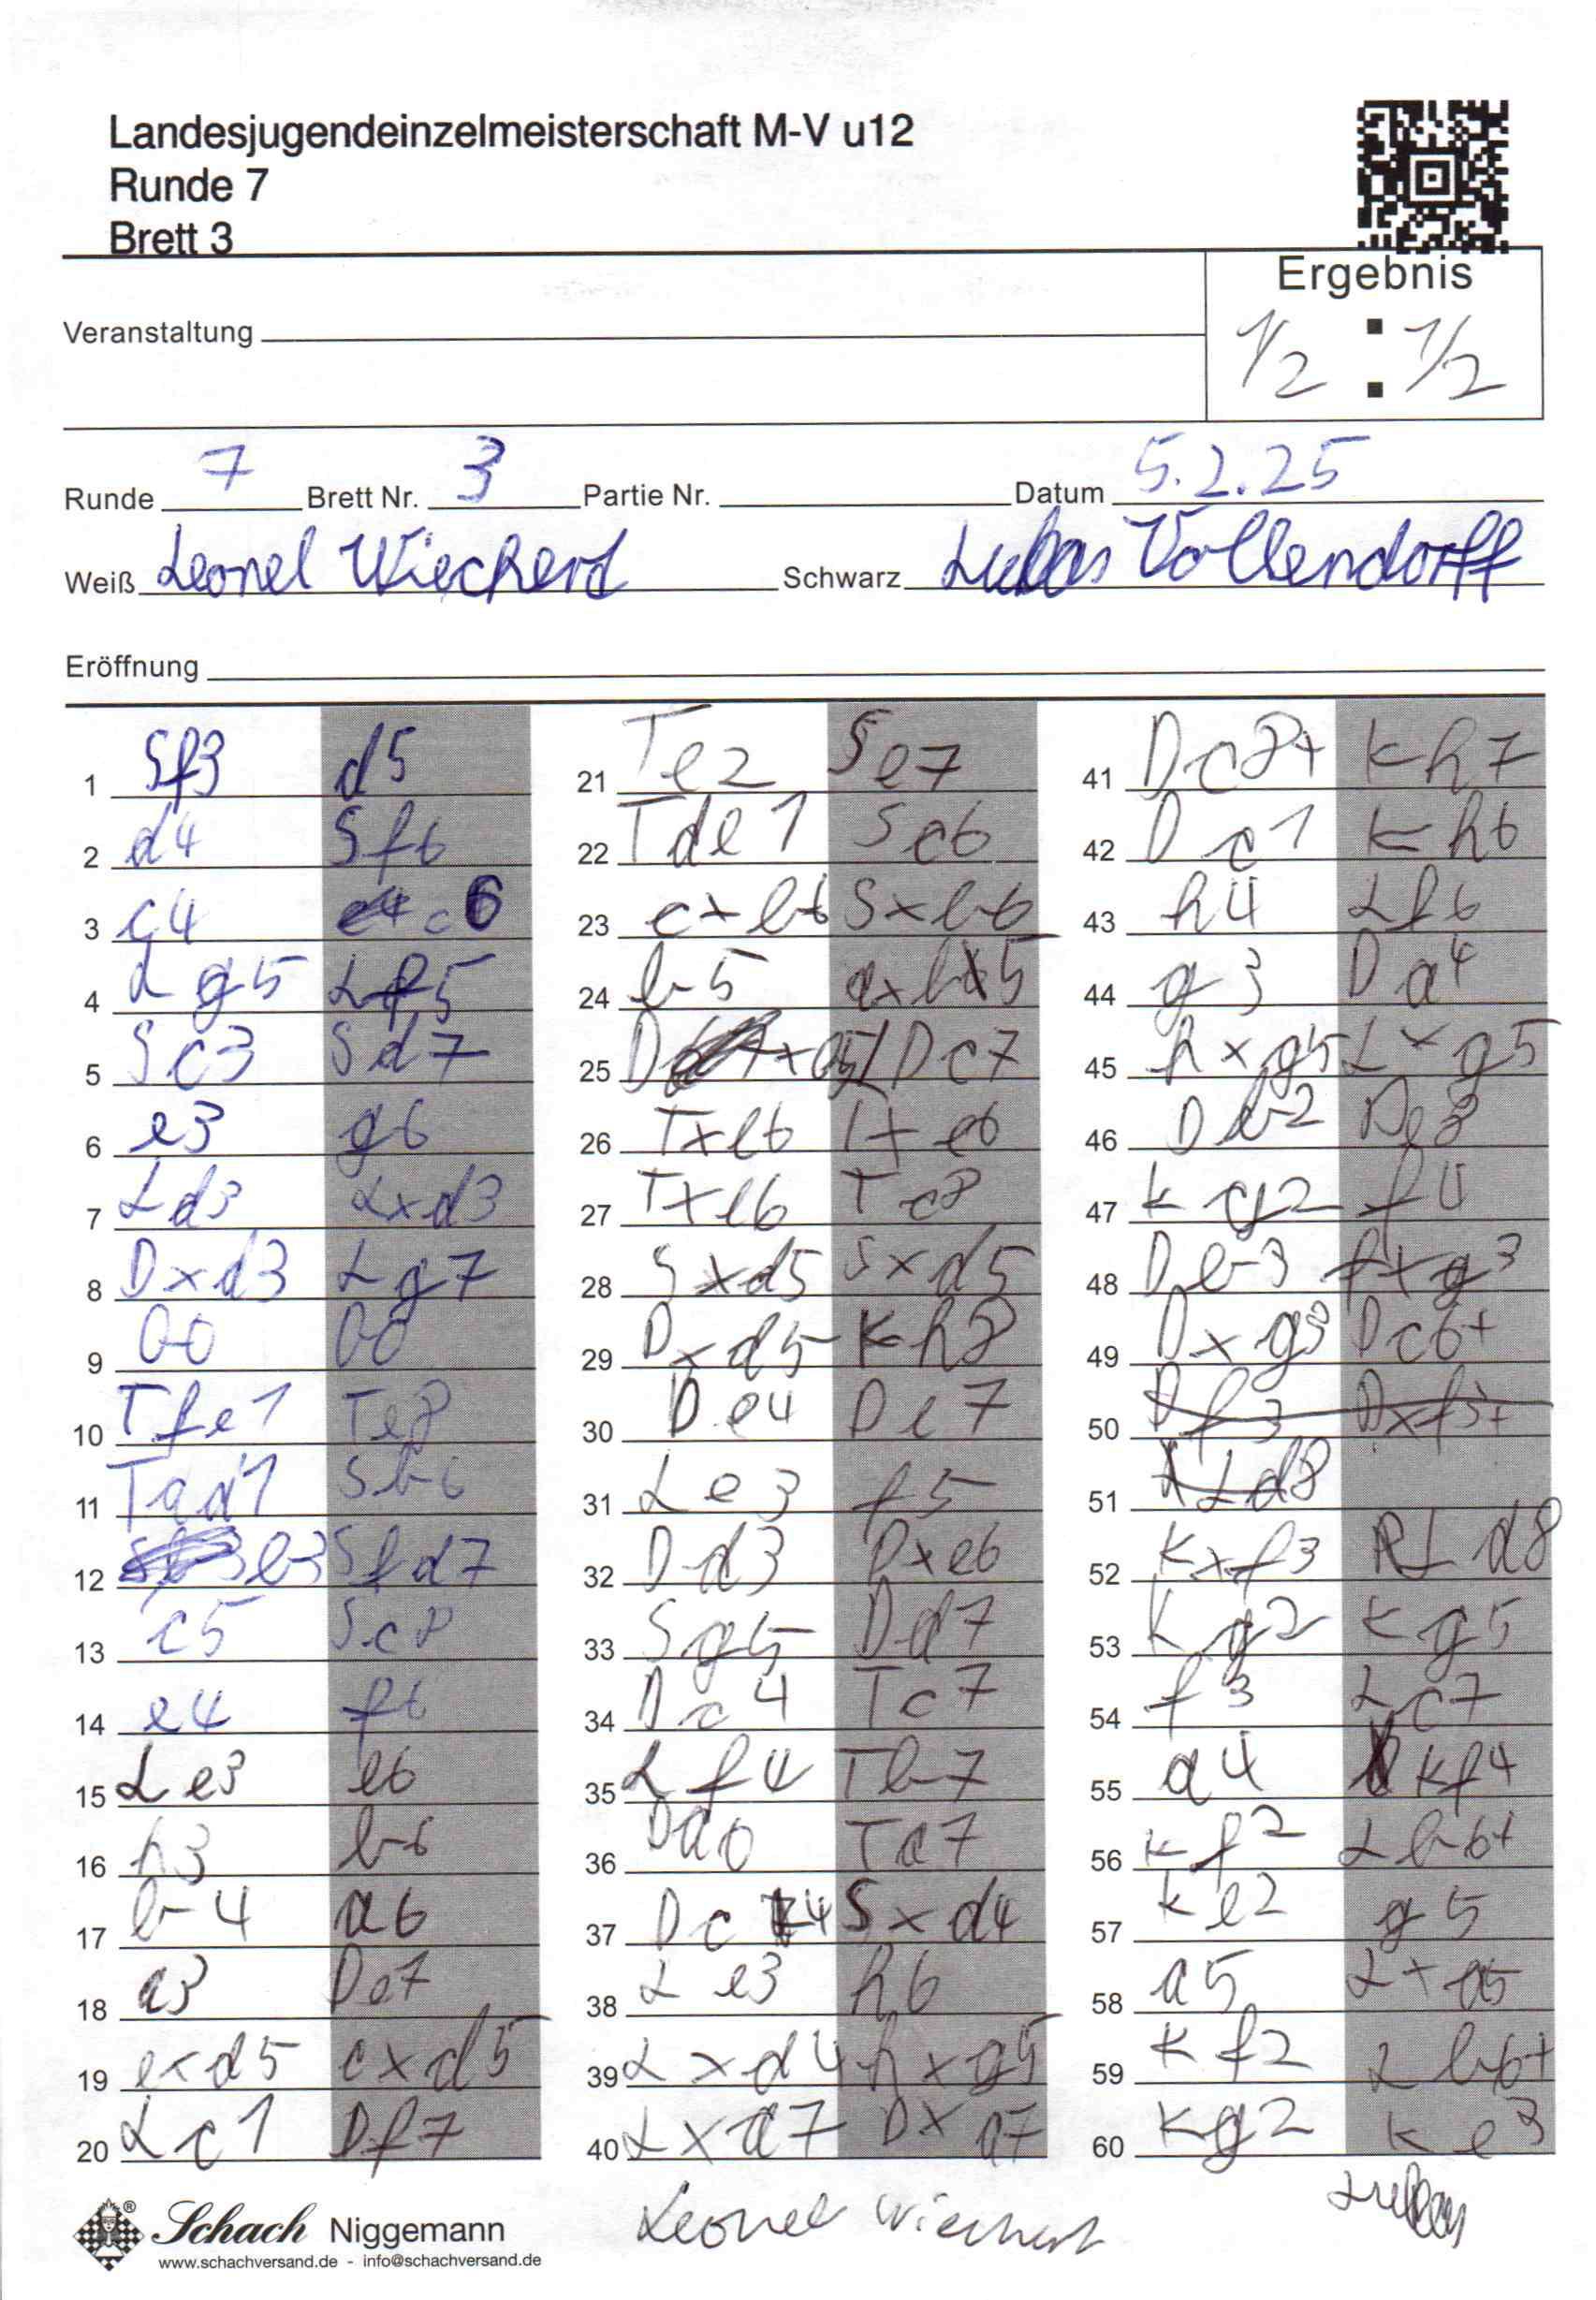 Landesjugendeinzelmeisterschaft M-V u12
Runde 7
Brett 3
Ergebnis
Veranstaltung
1/2 : 1/2
Runde 7 Brett Nr. 3 Partie Nr. Datum 5.2.25
Weiß Leonel Wiechert Schwarz Lukas Vollendorff
Eröffnung
1 Sf3 d5
2 d4 Sf6
3 c4 c6
4 Lg5 Lf5
5 Sc3 Sd7
6 e3 g6
7 Ld3 Lxd3
8 Dxd3 Lg7
9 00 00
10 Tfe1 Te8
11 Tad1 Sb6
12 b3 Sfd7
13 c5 Sc8
14 e4 f6
15 Le3 e6
16 h3 b6
17 b4 a6
18 a3 De7
19 exd5 cxd5
20 Lc1 Df7
21 Te2 Se7
22 Tde1 Sc6
23 cxb6 Sxb6
24 b5 axb5
25 Dxb5 Dc7
26 Txe6 Txe6
27 Txe6 Tc8
28 Sxd5 Sxd5
29 Dxd5 Kh8
30 De4 De7
31 Le3 f5
32 Dd3 Dxe6
33 Sg5 Dd7
34 Dc4 Tc7
35 Lf4 Tb7
36 Ta7
37 Dc4 Sxd4
38 Le3 h6
39 Lxd4 hxg5
40 Lxa7 Dxa7
41 Dc8+ Kh7
42 Dc1 Kh6
43 h4 Lf6
44 g3 Da4
45 hxg5 Lxg5
46 Db2 De8
47 Kg2 f4
48 Db3 fxg3
49 Dxg3 Dc6+
50 Df3 Dxf3+
51 Ld8
52 Kxf3 Ld8
53 Kg2 Kg5
54 f3 Lc7
55 a4 Kf4
56 Kf2 Lb6+
57 Ke2 g5
58 a5 Lxa5
59 Kf2 Lb6+
60 Kg2 Ke3
Schach Niggemann
www.schachversand.de - info@schachversand.de
Leonel Wiechert
Lukas